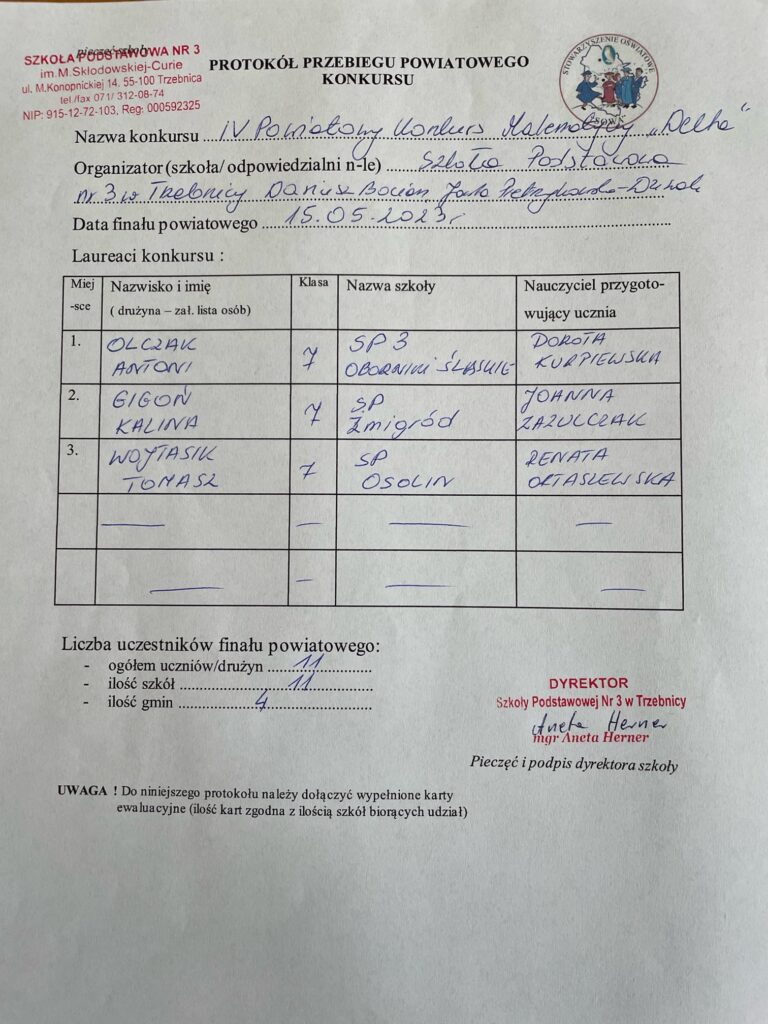 pieczęć szkoły
SZKOŁA PODSTAWOWA NR 3
im.M.Skłodowskiej-Curie
ul. M.Konopnickiej 14, 55-100 Trzebnica
tel./fax 071/ 312-08-74
NIP: 915-12-72-103, Reg: 000592325
PROTOKÓŁ PRZEBIEGU POWIATOWEGO
KONKURSU
STOWARZYSZENIE OŚWIATOWE
SOWA
Nazwa konkursu IV Powiatowy Konkurs Matematyczny „Delta"
Organizator (szkoła/ odpowiedzialni n-le) Szkoła Podstawowa
nr 3 w Trzebnicy Dariusz Bocian,
Data finału powiatowego 15.05.2023r
Laureaci konkursu :
Miej-sce Nazwisko i imię ( drużyna – zał. lista osób) Klasa Nazwa szkoły Nauczyciel przygoto-wujący ucznia
1. OLCZAK ANTONI 7 SP 3 OBORNIKI ŚLĄSKIE DOROTA KURPIEWSKA
2. GIGOŃ KALINA 7 SP Żmigród JOANNA ZAZULCZAK
3. WOJTASIK TOMASZ 7 SP OSOLIN RENATA
Liczba uczestników finału powiatowego:
- ogółem uczniów/drużyn 11
- ilość szkół 11
- ilość gmin 4
DYREKTOR
Szkoły Podstawowej Nr 3 w Trzebnicy
Aneta Herner
mgr Aneta Herner
Pieczęć i podpis dyrektora szkoły
UWAGA ! Do niniejszego protokołu należy dołączyć wypełnione karty
ewaluacyjne (ilość kart zgodna z ilością szkół biorących udział)